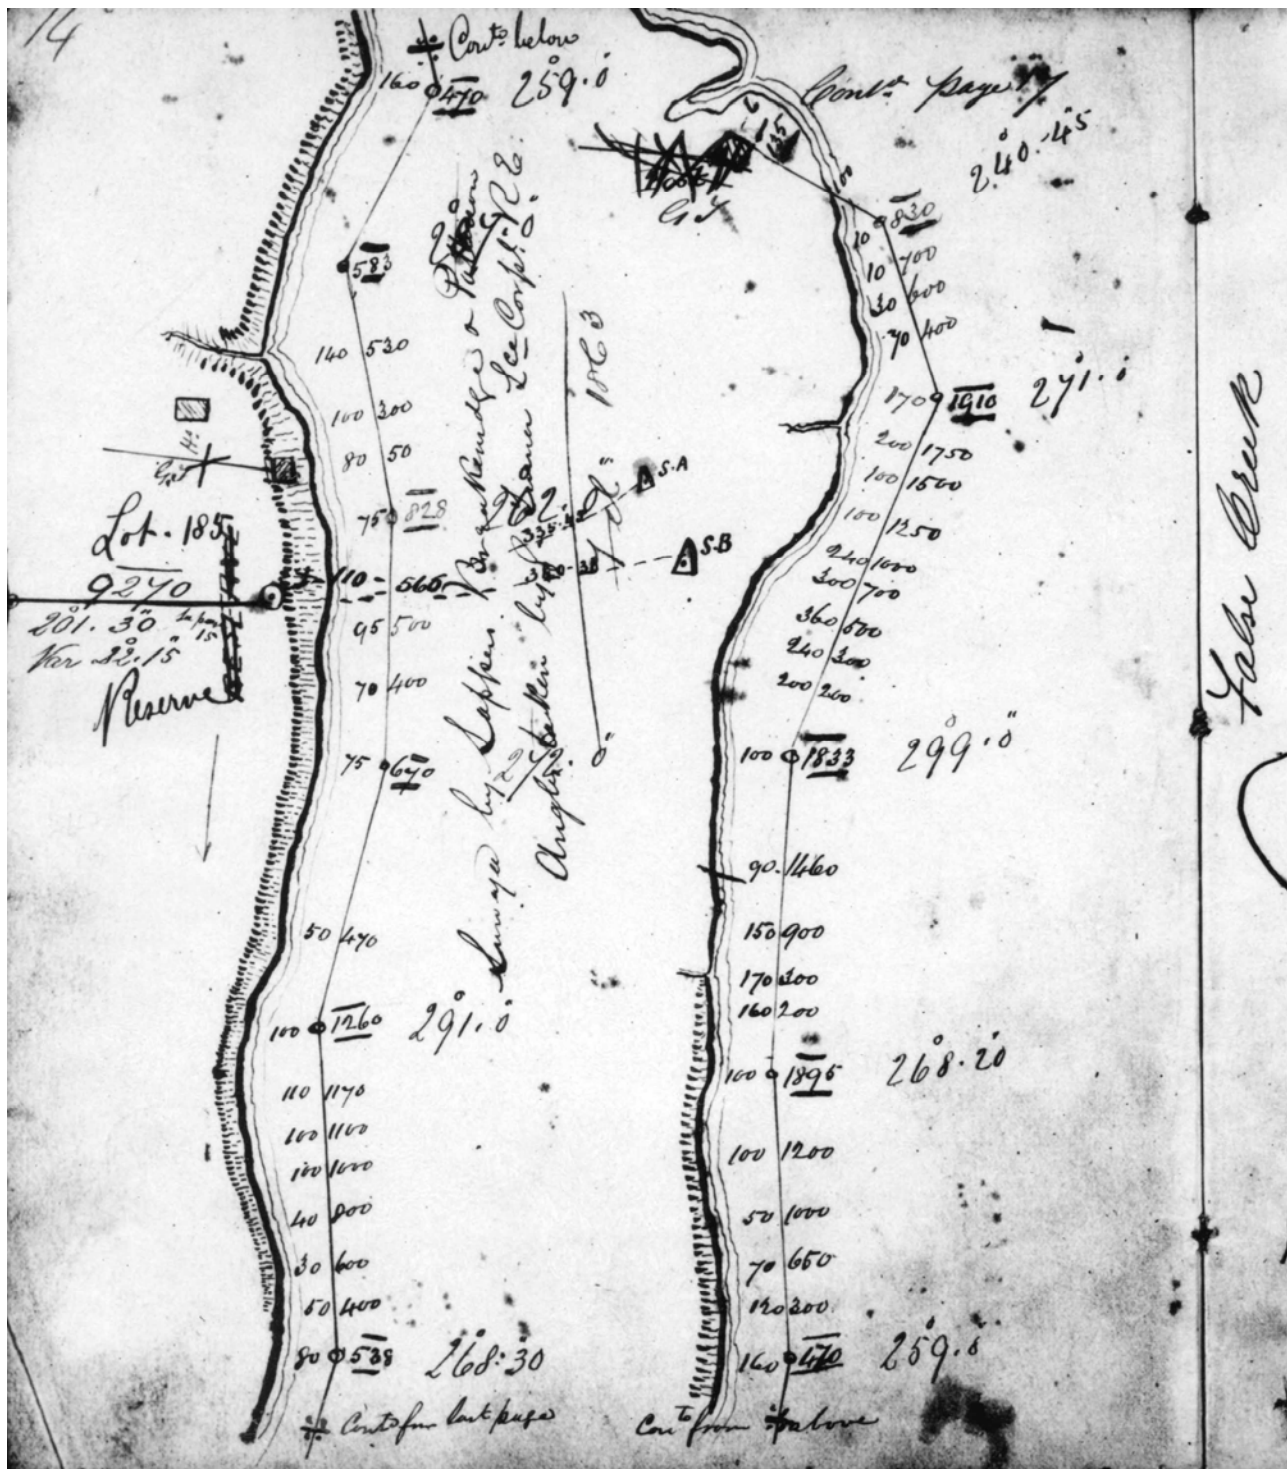 14
Cont.d below
160 470 259°.0"
583
140 530
100 300
80 50
75 828 282
110 - 566
95 500
70 400
75 670 272°.0"
50 470
100 1260 291°.0"
110 1170
100 1100
100 1000
40 800
30 600
50 400
80 538 268°:30
Cont.d from last page
Lot. 185
9270
201°.30"
Var 22°.15"
Reserve
Surveyd by Sappers Breakenridge &
Angles taken by Lce Corpl. R E.
1863
S.A
S.B
G S
Cont.d page 17
135
100
10 830 240°.45"
10 700
30 600
70 400
170 1910 271°.0"
200 1750
100 1500
100 1250
240 1000
300 700
360 500
240 300
200 200
100 1833 299°.0"
90.1460
150 900
170 300
160 200
100 1895 268°.20
100 1200
50 1000
70 650
120 300
160 470 259°.0"
Con.td from above
False Creek